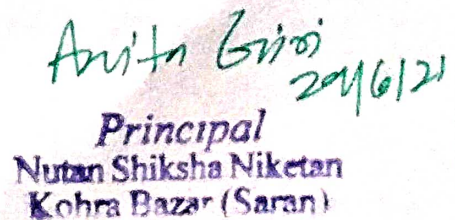 Anita Giri
29/6/21
Principal
Nutan Shiksha Niketan
Kohra Bazar (Saran)